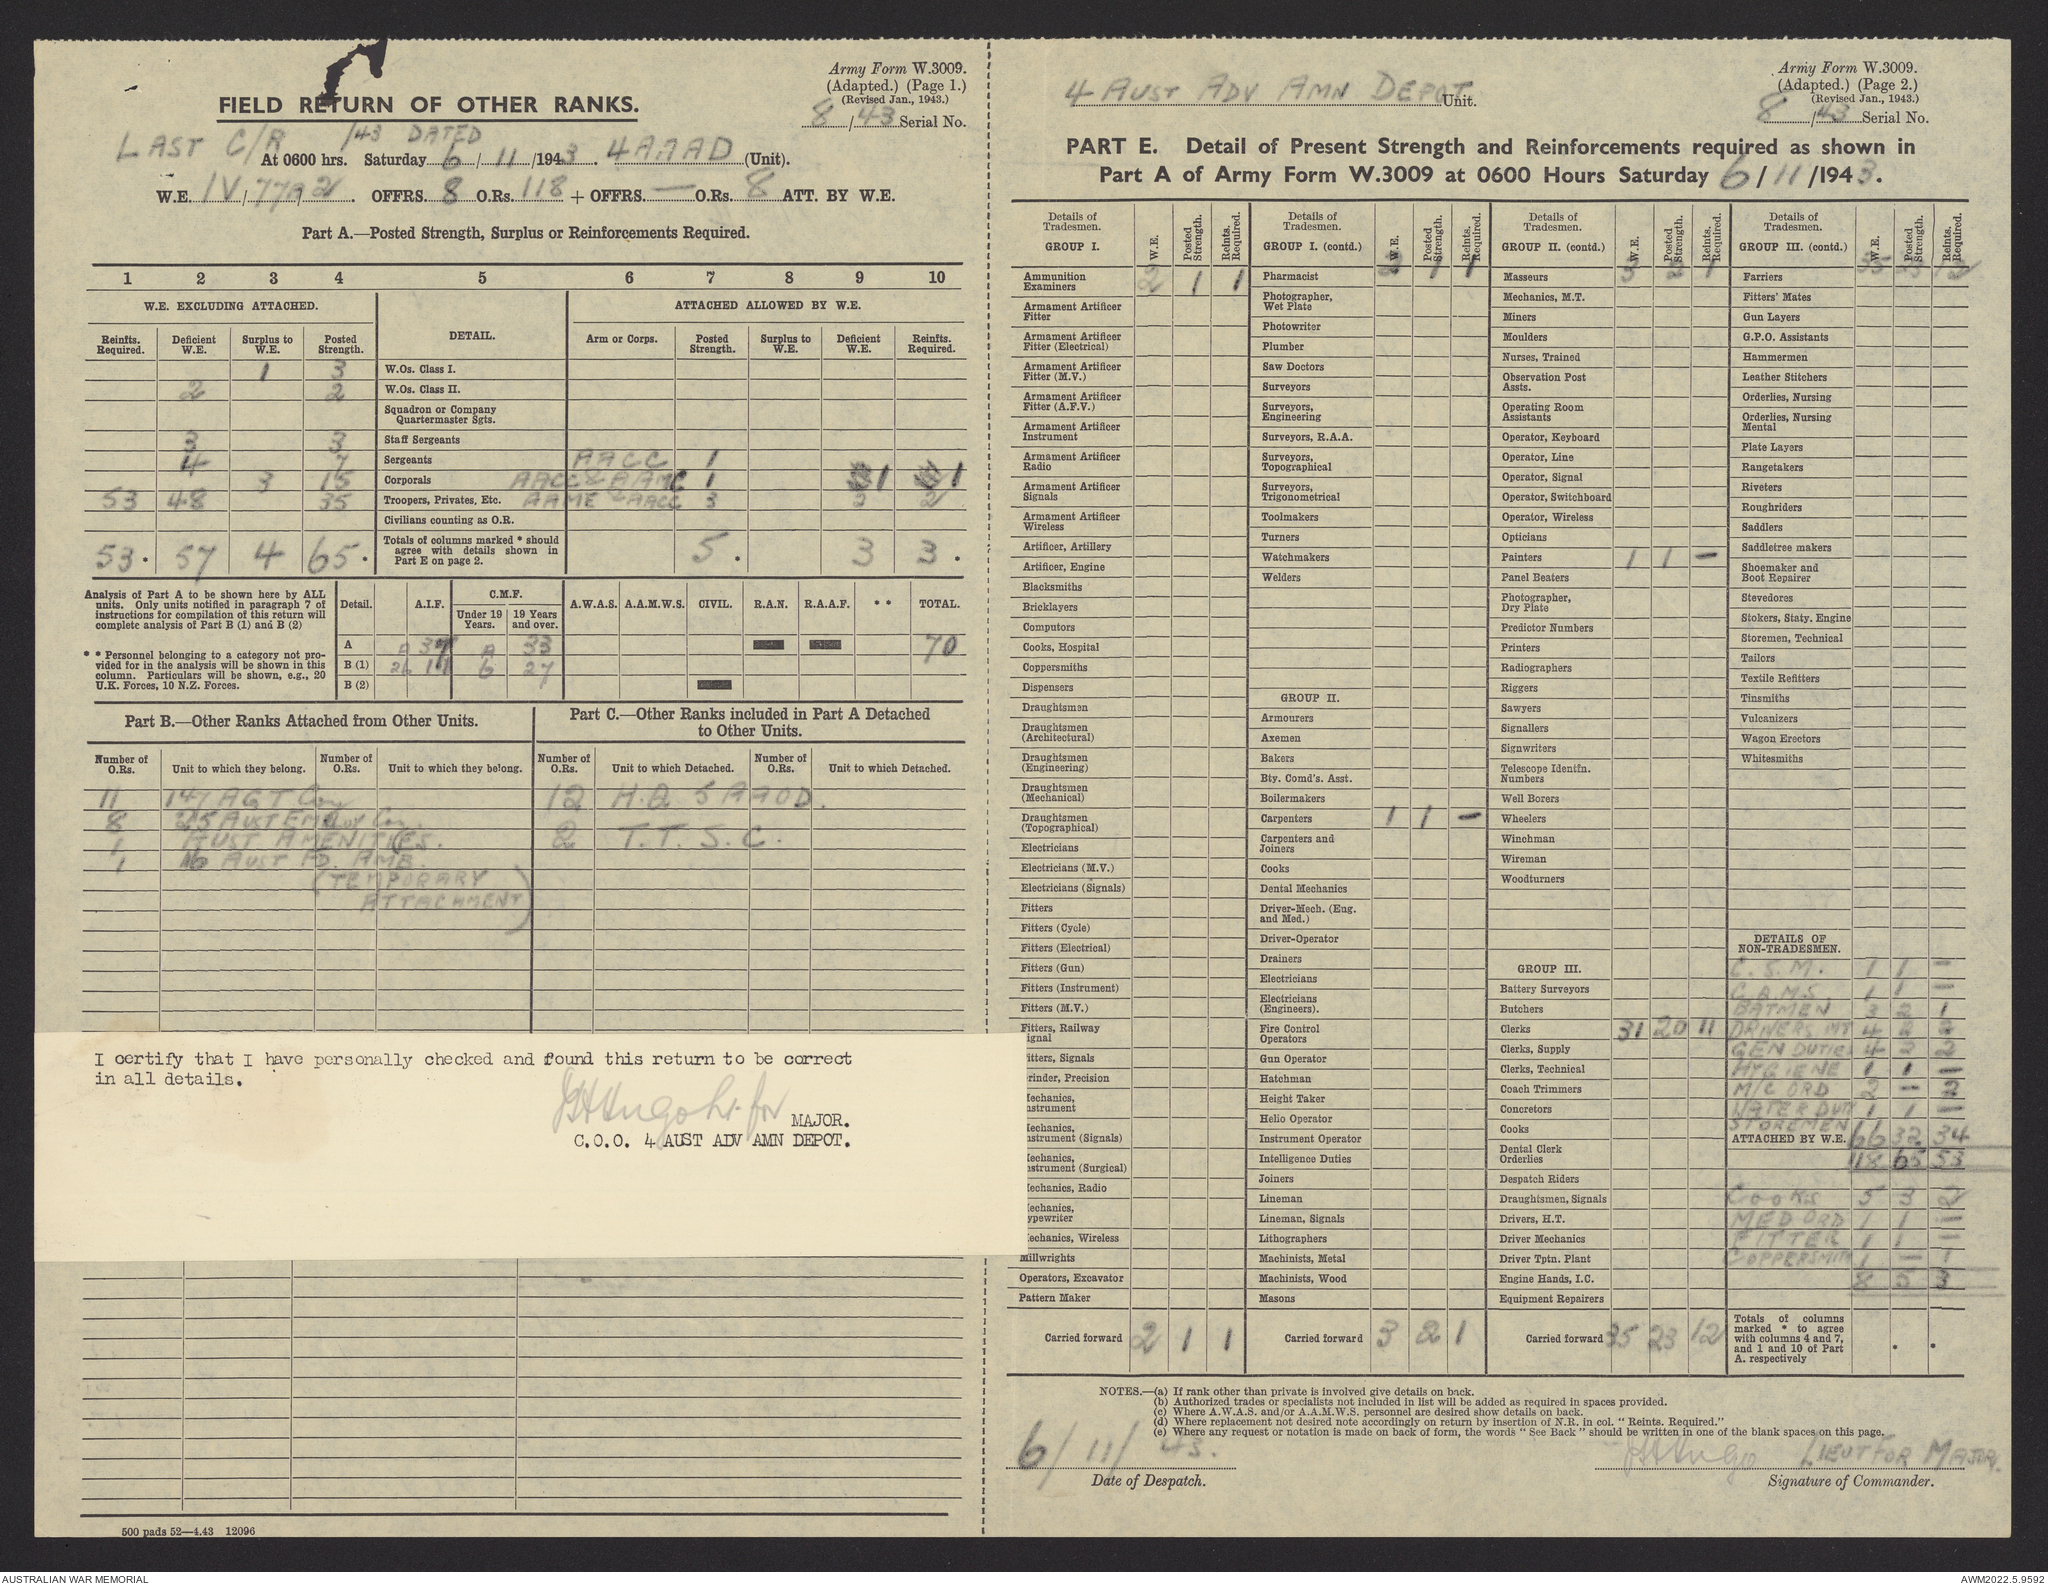 Army Form W.3009.
(Adapted.) (Page 1.)
(Revised Jan., 1943.)
8/43 Serial No.
FIELD RETURN OF OTHER RANKS.
LAST C/R /43 DATED
At 0600 hrs. Saturday 6/11/1943. 4AAAD (Unit).
W.E. IV/77A/2. OFFRS. 8 O.Rs. 118 + OFFRS. — O.Rs. 8 ATT. BY W.E.
Part A.—Posted Strength, Surplus or Reinforcements Required.
1 2 3 4 5 6 7 8 9 10
W.E. EXCLUDING ATTACHED. DETAIL. ATTACHED ALLOWED BY W.E.
Reinfts. Required. Deficient W.E. Surplus to W.E. Posted Strength. Arm or Corps. Posted Strength. Surplus to W.E. Deficient W.E. Reinfts. Required.
1 3 W.Os. Class I.
2 2 W.Os. Class II.
Squadron or Company Quartermaster Sgts.
3 3 Staff Sergeants
4 7 Sergeants AACC 1
3 15 Corporals AACC & AAMC 1 1 1
53 48 35 Troopers, Privates, Etc. AAME & AACC 3 2 2
Civilians counting as O.R.
53. 57 4 65. Totals of columns marked * should agree with details shown in Part E on page 2. 5. 3 3.
Analysis of Part A to be shown here by ALL units. Only units notified in paragraph 7 of instructions for compilation of this return will complete analysis of Part B (1) and B (2)
* * Personnel belonging to a category not provided for in the analysis will be shown in this column. Particulars will be shown, e.g., 20 U.K. Forces, 10 N.Z. Forces.
Detail. A.I.F. C.M.F. Under 19 Years. 19 Years and over. A.W.A.S. A.A.M.W.S. CIVIL. R.A.N. R.A.A.F. * * TOTAL.
A 37 33 70
B (1) 26 11 6 27
B (2)
Part B.—Other Ranks Attached from Other Units.
Number of O.Rs. Unit to which they belong. Number of O.Rs. Unit to which they belong.
11 147 AGT Coy
8 25 AUST EMPLOY Coy.
1 AUST AMENITIES.
1 16 AUST FD. AMB.
(TEMPORARY
ATTACHMENT)
Part C.—Other Ranks included in Part A Detached to Other Units.
Number of O.Rs. Unit to which Detached. Number of O.Rs. Unit to which Detached.
12 H.Q. 5 AAOD.
2 T.T.S.C.
I certify that I have personally checked and found this return to be correct
in all details.
MAJOR.
C.O.O. 4 AUST ADV AMN DEPOT.
500 pads 52—4.43 12096
4 AUST ADV AMN DEPOT Unit.
Army Form W.3009.
(Adapted.) (Page 2.)
(Revised Jan., 1943.)
8/43 Serial No.
PART E. Detail of Present Strength and Reinforcements required as shown in
Part A of Army Form W.3009 at 0600 Hours Saturday 6/11/1943.
Details of Tradesmen. GROUP I. W.E. Posted Strength. Reints. Required.
Ammunition Examiners 2 1 1
Armament Artificer Fitter
Armament Artificer Fitter (Electrical)
Armament Artificer Fitter (M.V.)
Armament Artificer Fitter (A.F.V.)
Armament Artificer Instrument
Armament Artificer Radio
Armament Artificer Signals
Armament Artificer Wireless
Artificer, Artillery
Artificer, Engine
Blacksmiths
Bricklayers
Computors
Cooks, Hospital
Coppersmiths
Dispensers
Draughtsmen
Draughtsmen (Architectural)
Draughtsmen (Engineering)
Draughtsmen (Mechanical)
Draughtsmen (Topographical)
Electricians
Electricians (M.V.)
Electricians (Signals)
Fitters
Fitters (Cycle)
Fitters (Electrical)
Fitters (Gun)
Fitters (Instrument)
Fitters (M.V.)
Fitters, Railway ignal
itters, Signals
rinder, Precision
echanics, nstrument
echanics, nstrument (Signals)
echanics, nstrument (Surgical)
echanics, Radio
echanics, ypewriter
echanics, Wireless
Millwrights
Operators, Excavator
Pattern Maker
Carried forward 2 1 1
Details of Tradesmen. GROUP I. (contd.) W.E. Posted Strength. Reints. Required.
Pharmacist 2 1 1
Photographer, Wet Plate
Photowriter
Plumber
Saw Doctors
Surveyors
Surveyors, Engineering
Surveyors, R.A.A.
Surveyors, Topographical
Surveyors, Trigonometrical
Toolmakers
Turners
Watchmakers
Welders
GROUP II.
Armourers
Axemen
Bakers
Bty. Comd's. Asst.
Boilermakers
Carpenters 1 1 —
Carpenters and Joiners
Cooks
Dental Mechanics
Driver-Mech. (Eng. and Med.)
Driver-Operator
Drainers
Electricians
Electricians (Engineers).
Fire Control Operators
Gun Operator
Hatchman
Height Taker
Helio Operator
Instrument Operator
Intelligence Duties
Joiners
Lineman
Lineman, Signals
Lithographers
Machinists, Metal
Machinists, Wood
Masons
Carried forward 3 2 1
Details of Tradesmen. GROUP II. (contd.) W.E. Posted Strength. Reints. Required.
Masseurs 3 2 1
Mechanics, M.T.
Miners
Moulders
Nurses, Trained
Observation Post Assts.
Operating Room Assistants
Operator, Keyboard
Operator, Line
Operator, Signal
Operator, Switchboard
Operator, Wireless
Opticians
Painters 1 1 —
Panel Beaters
Photographer, Dry Plate
Predictor Numbers
Printers
Radiographers
Riggers
Sawyers
Signallers
Signwriters
Telescope Identfn. Numbers
Well Borers
Wheelers
Winchman
Wireman
Woodturners
GROUP III.
Battery Surveyors
Butchers
Clerks 31 20 11
Clerks, Supply
Clerks, Technical
Coach Trimmers
Concretors
Cooks
Dental Clerk Orderlies
Despatch Riders
Draughtsmen, Signals
Drivers, H.T.
Driver Mechanics
Driver Tptn. Plant
Engine Hands, I.C.
Equipment Repairers
Carried forward 35 23 12
Details of Tradesmen. GROUP III. (contd.) W.E. Posted Strength. Reints. Required.
Farriers 35 23 12
Fitters' Mates
Gun Layers
G.P.O. Assistants
Hammermen
Leather Stitchers
Orderlies, Nursing
Orderlies, Nursing Mental
Plate Layers
Rangetakers
Riveters
Roughriders
Saddlers
Saddletree makers
Shoemaker and Boot Repairer
Stevedores
Stokers, Staty. Engine
Storemen, Technical
Tailors
Textile Refitters
Tinsmiths
Vulcanizers
Wagon Erectors
Whitesmiths
DETAILS OF NON-TRADESMEN.
C.S.M. 1 1 —
C.A.M.S 1 1 —
BATMEN 3 2 1
DRIVERS MT 4 2 2
GEN DUTIES 4 2 2
HYGIENE 1 1 —
M/C ORD 2 — 2
WATER DUTY 1 1 —
STOREMEN 66 32 34
ATTACHED BY W.E. 118 65 53
COOKS 5 3 2
MED ORD 1 1 —
FITTER 1 1 —
COPPERSMITH 1 — 1
8 5 3
Totals of columns marked * to agree with columns 4 and 7, and 1 and 10 of Part A. respectively * *
NOTES.—(a) If rank other than private is involved give details on back.
(b) Authorized trades or specialists not included in list will be added as required in spaces provided.
(c) Where A.W.A.S. and/or A.A.M.W.S. personnel are desired show details on back.
(d) Where replacement not desired note accordingly on return by insertion of N.R. in col. "Reints. Required."
(e) Where any request or notation is made on back of form, the words "See Back" should be written in one of the blank spaces on this page.
6/11/43. LIEUT FOR MAJOR.
Date of Despatch. Signature of Commander.
AUSTRALIAN WAR MEMORIAL AWM2022.5.9592